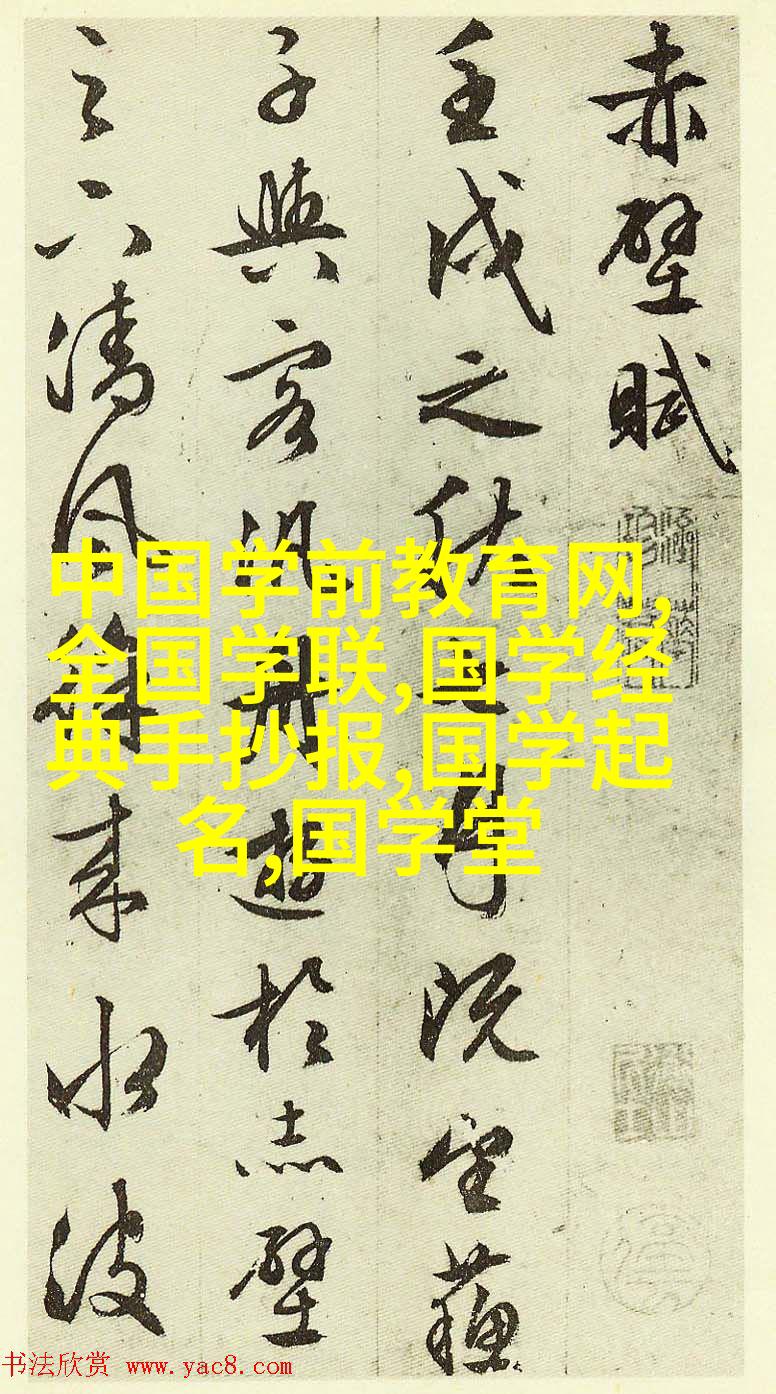 赤壁賦
壬戌之秋七月既望蘇
子與客汎舟遊於赤壁
之下清風徐來水波
中国学前教育网,
全国学联,国学经
典手抄报,国学起
名,国学堂
书法欣赏 www.yac8.com